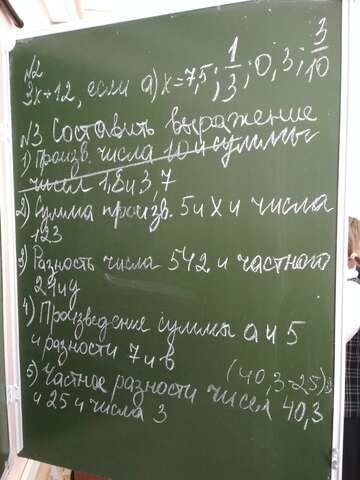 №2
3х+1,2, если а) х=7,5; 1/3; 0,3; 3/10
№3 Составить выражение
1) Произв. числа 10 и суммы
чисел 1,8 и 3,7
2) Сумма произв. 5 и х и числа
123
3) Разность числа 542 и частного
24 и у
4) Произведение суммы а и 5
и разности 7 и в
(40,3-25):3
5) Частное разности чисел 40,3
и 25 и числа 3